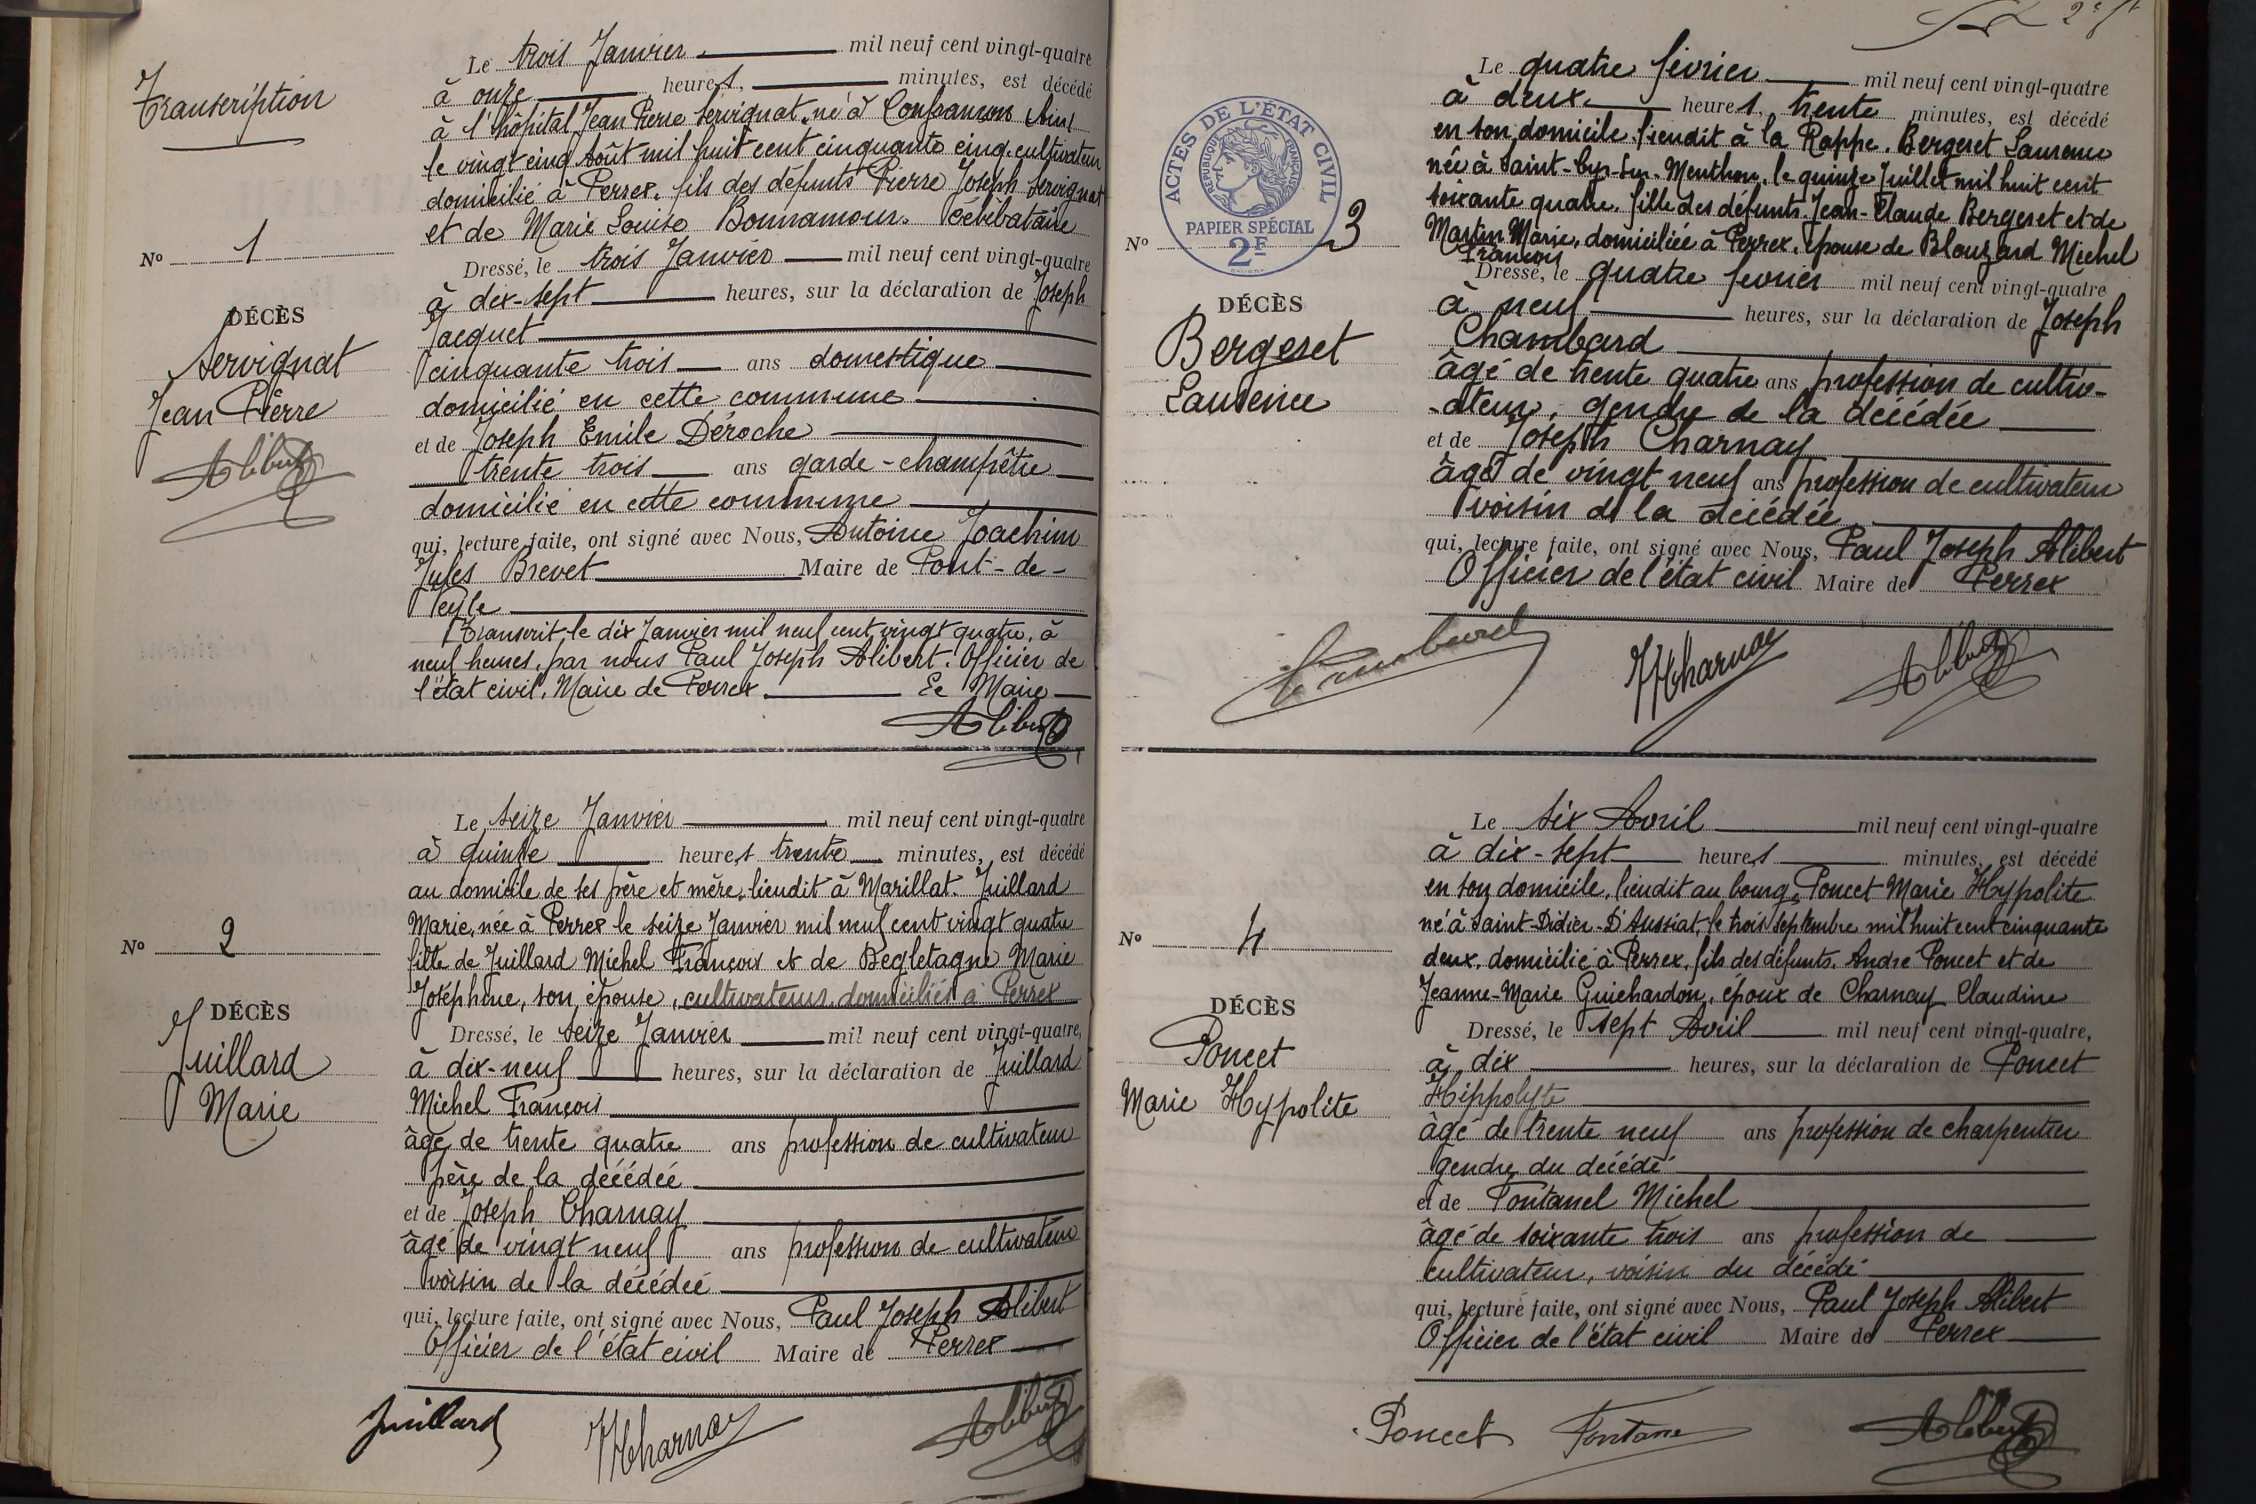 Transcription
Le trois Janvier mil neuf cent vingt-quatre
à onze heures, minutes, est décédé
à l'hôpital Jean Pierre Servignat, né à Confrançon Ain
le vingt cinq Août mil huit cent cinquante cinq, cultivateur
domicilié à Perrex, fils des défunts Pierre Joseph Servignat
et de Marie Louise Bonnamour. Célibataire
No 1
Dressé, le trois Janvier mil neuf cent vingt-quatre
à dix-sept heures, sur la déclaration de Joseph
DÉCÈS
Jacquet
Servignat
cinquante trois ans domestique
Jean Pierre
domicilié en cette commune
et de Joseph Emile Déroche
Alibert
trente trois ans garde-champêtre
domicilié en cette commune
qui, lecture faite, ont signé avec Nous, Antoine Joachim
Jules Brevet Maire de Pont-de-
Veyle
Transcrit, le dix Janvier mil neuf cent vingt quatre, à
neuf heures, par nous Paul Joseph Alibert, Officier de
l'état civil, Maire de Perrex Le Maire
Alibert
Le seize Janvier mil neuf cent vingt-quatre
à quinze heures trente minutes, est décédé
au domicile de ses père et mère, lieudit à Marillat. Juillard
Marie, née à Perrex le seize Janvier mil neuf cent vingt quatre
No 2
fille de Juillard Michel François et de Begletagne Marie
Joséphine, son épouse, cultivateurs domiciliés à Perrex
DÉCÈS
Dressé, le seize Janvier mil neuf cent vingt-quatre,
Juillard
à dix-neuf heures, sur la déclaration de Juillard
Marie
Michel François
âgé de trente quatre ans profession de cultivateur
père de la décédée
et de Joseph Charnay
âgé de vingt neuf ans profession de cultivateur
voisin de la décédée
qui, lecture faite, ont signé avec Nous, Paul Joseph Alibert
Officier de l'état civil Maire de Perrex
Juillard JCharnay Alibert
Le quatre février mil neuf cent vingt-quatre
à deux heures, trente minutes, est décédé
en son domicile, lieudit à la Rappe, Bergeret Laurence
née à Saint-Cyr-sur-Menthon, le quinze Juillet mil huit cent
soixante quatre, fille des défunts Jean-Claude Bergeret et de
Martin Marie, domiciliée à Perrex, épouse de Blouzard Michel
François
ACTES DE L'ÉTAT CIVIL
RÉPUBLIQUE FRANÇAISE
PAPIER SPÉCIAL
2F
No 3
Dressé, le quatre février mil neuf cent vingt-quatre
DÉCÈS
à neuf heures, sur la déclaration de Joseph
Bergeret
Chambard
Laurence
âgé de trente quatre ans profession de cultiv-
-ateur, gendre de la décédée
et de Joseph Charnay
âgé de vingt neuf ans profession de cultivateur
voisin de la décédée
qui, lecture faite, ont signé avec Nous, Paul Joseph Alibert
Officier de l'état civil Maire de Perrex
JCharnay Alibert
Le six Avril mil neuf cent vingt-quatre
à dix-sept heures minutes, est décédé
en son domicile, lieudit au bourg, Poncet Marie Hypolite
né à Saint-Didier-D'Aussiat, le trois Septembre mil huit cent cinquante
No 4
deux, domicilié à Perrex, fils des défunts, André Poncet et de
Jeanne-Marie Guichardon, époux de Charnay Claudine
DÉCÈS
Dressé, le sept Avril mil neuf cent vingt-quatre,
Poncet
à dix heures, sur la déclaration de Poncet
Marie Hypolite
Hippolyte
âgé de trente neuf ans profession de charpentier
gendre du décédé
et de Fontanel Michel
âgé de soixante trois ans profession de
cultivateur, voisin du décédé
qui, lecture faite, ont signé avec Nous, Paul Joseph Alibert
Officier de l'état civil Maire de Perrex
Poncet Fontane Alibert